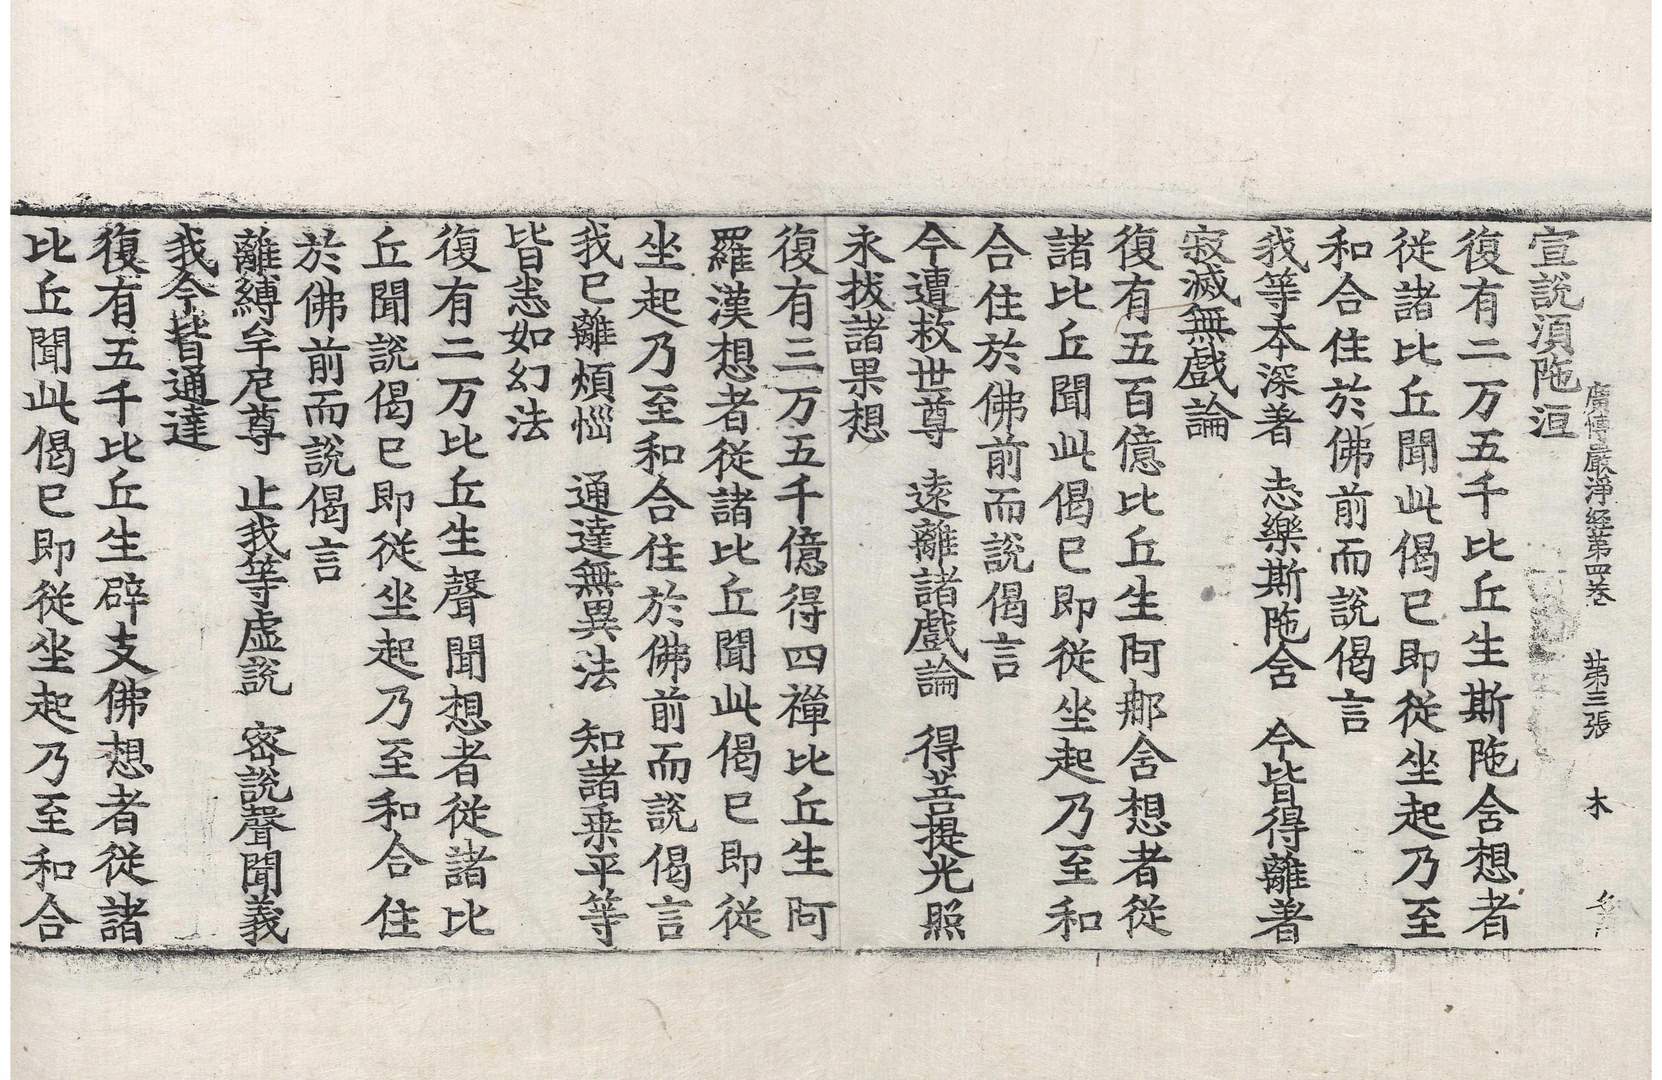 廣博嚴淨経第四卷 第三張 木
宣說湏陁洹
復有二万五千比丘生斯陁含想者
從諸比丘聞此偈已即從坐起乃至
和合住於佛前而說偈言
我等本深著 志樂斯陁含 今皆得離著
寂滅無戲論
復有五百億比丘生阿那含想者從
諸比丘聞此偈已即從坐起乃至和
合住於佛前而說偈言
今遭救世尊 遠離諸戲論 得菩提光照
永拔諸果想
復有三万五千億得四禪比丘生阿
羅漢想者從諸比丘聞此偈已即從
坐起乃至和合住於佛前而說偈言
我已離煩惱 通達無異法 知諸乗平等
皆悉如幻法
復有二万比丘生聲聞想者從諸比
丘聞說偈已即從坐起乃至和合住
於佛前而說偈言
離縛牟尼尊 止我等虛說 密說聲聞義
我今皆通達
復有五千比丘生辟支佛想者從諸
比丘聞此偈已即從坐起乃至和合